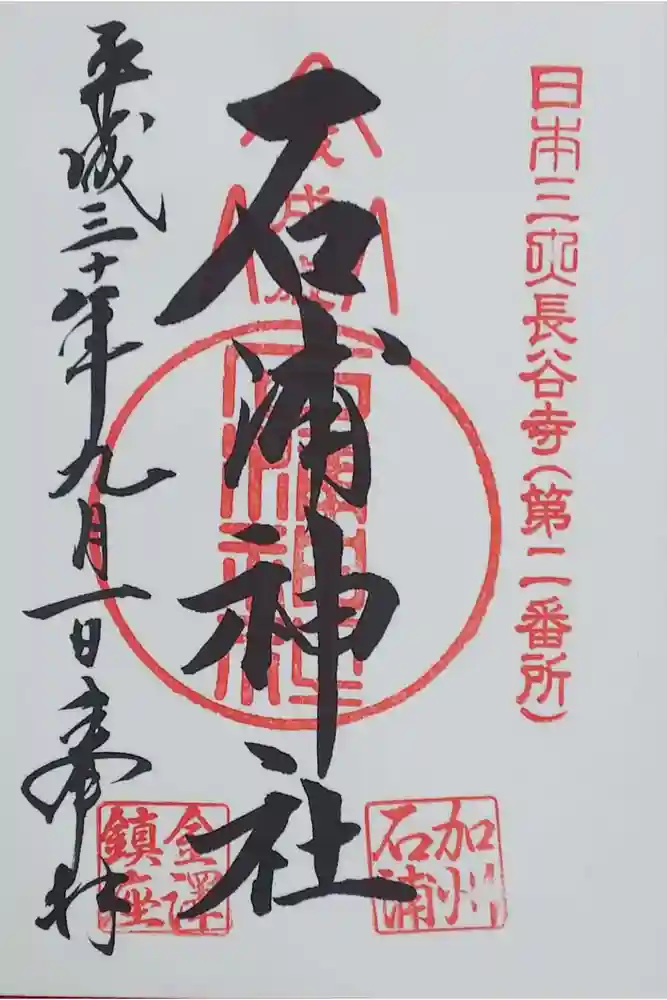 日本三所長谷寺(第二番所)
石浦神社
加州
石浦
金澤
鎮座
平成三十年九月一日奉拝